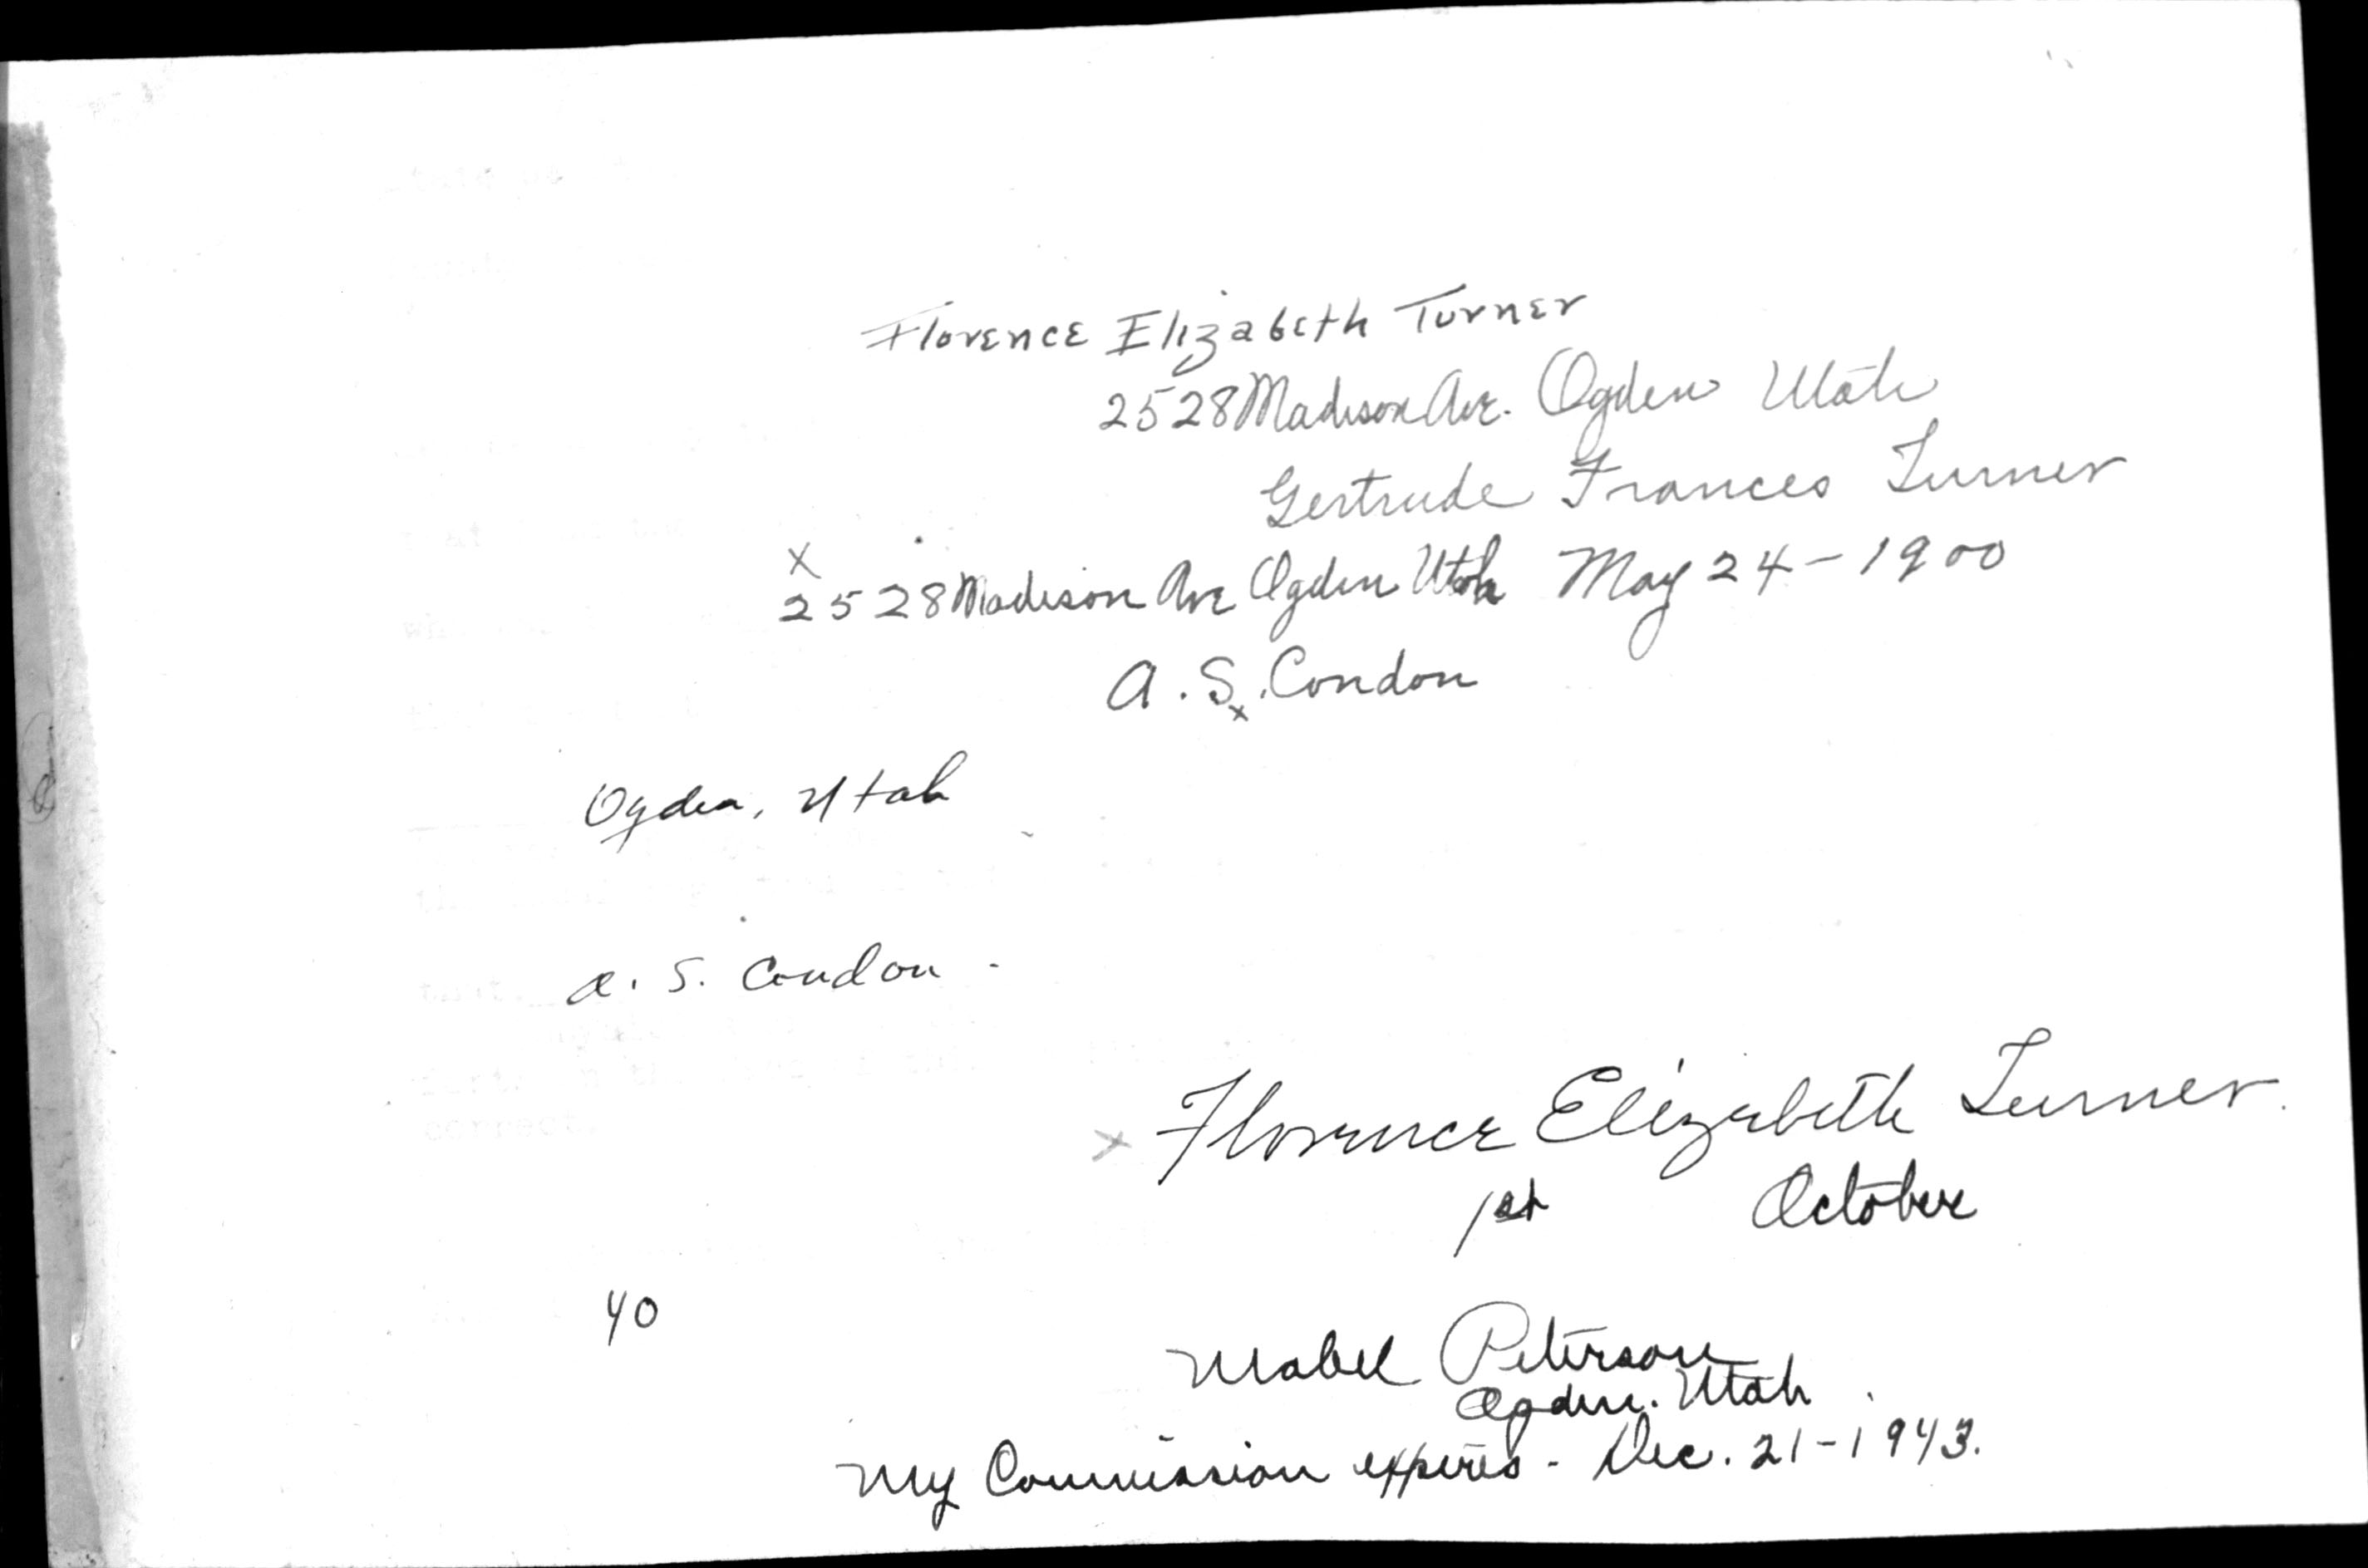 Florence Elizabeth Turner
2528 Madison Ave. Ogden Utah
Gertrude Frances Turner
x
2528 Madison Ave Ogden Utah May 24-1900
A. S. Condon
x
Ogden, Utah
A. S. Condon -
x Florence Elizabeth Turner.
1st October
40
Mabel Peterson
Ogden. Utah
My Commission expires - Dec. 21-1943.
correct